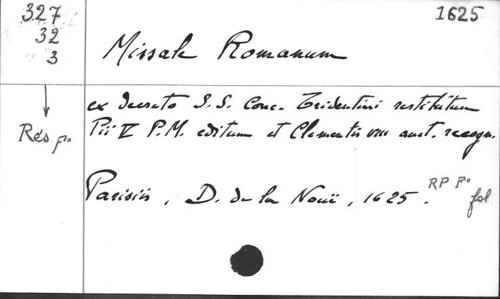 327
32
3
1625
Missale Romanum
ex decreto S.S. Conc. Tridentini restitutum
Pii V P.M. editum et Clementis VIII auct. recogn.
Rés Fo.
Parisiis, D. de la Noüe, 1625.
RP Fo
fol